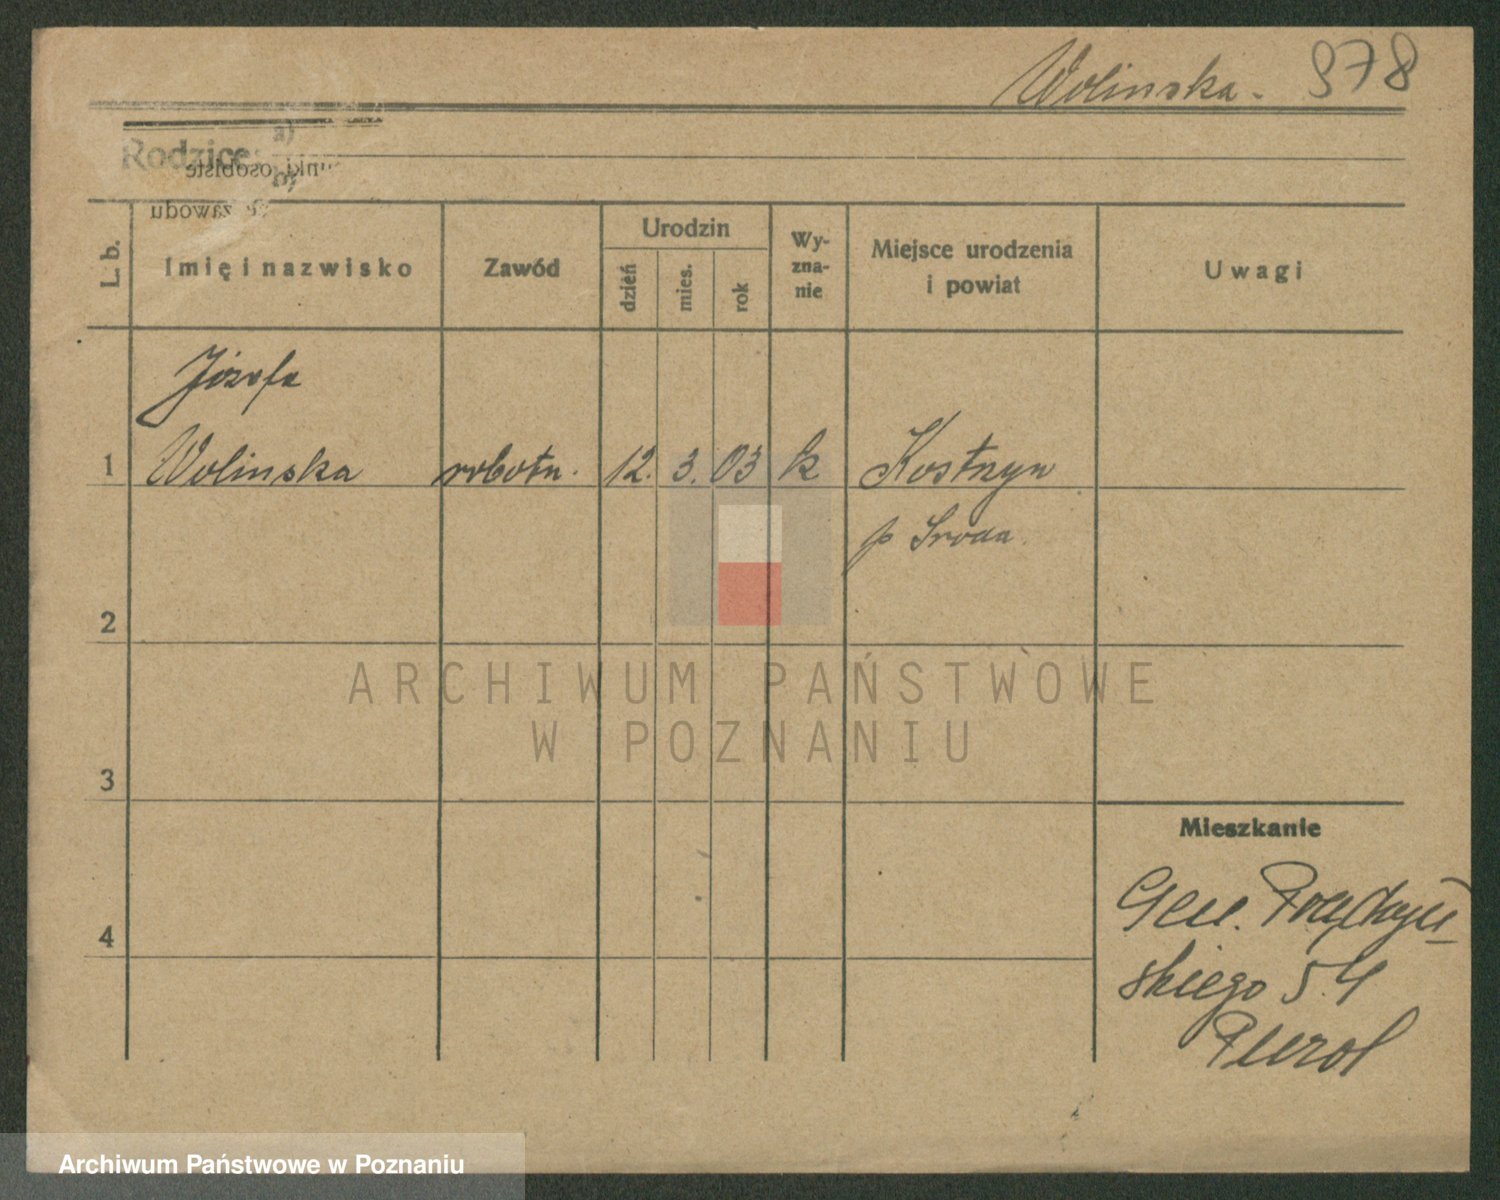 Wolinska. 978
Rodzice: a)
b)
L. b. Imię i nazwisko Zawód Urodzin dzień mies. rok Wy-zna-nie Miejsce urodzenia i powiat Uwagi
Józefa
1 Wolinska robotn. 12. 3. 03 k Kostrzyn
p Sroda
2
3
4
Mieszkanie
Gen. Prądzyń-
skiego 54
ARCHIWUM PAŃSTWOWE
W POZNANIU
Archiwum Państwowe w Poznaniu